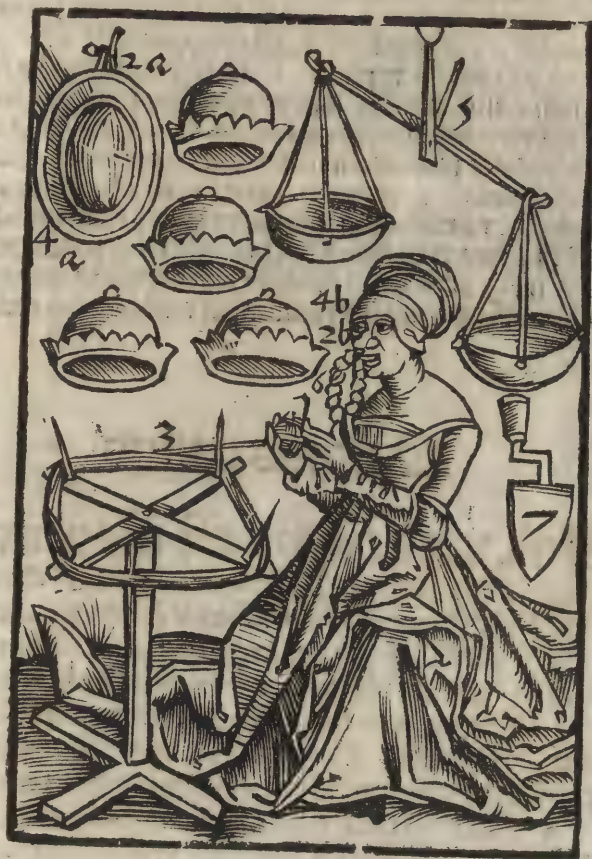 2 a
5
4
a
4b
2b
1
3
7